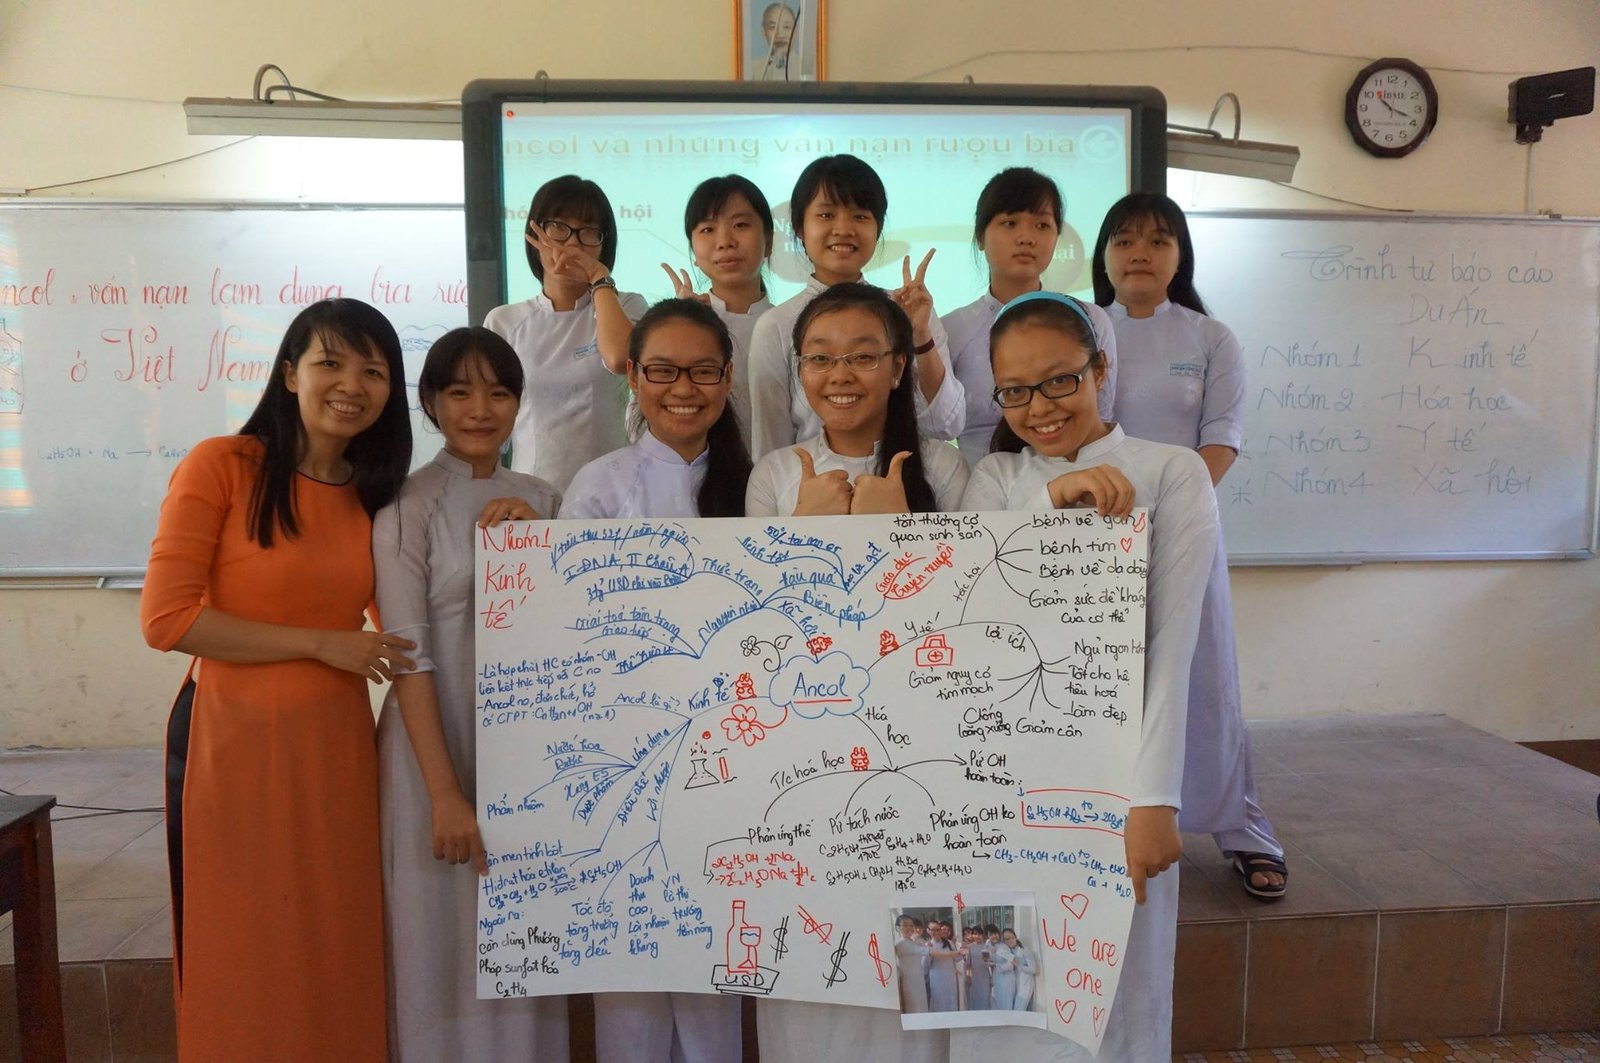 ncol và những vấn nạn rượu bia
hội
ncol & vấn nạn lạm dụng bia rượ
ở Việt Nam
C2H5OH + Na →
Trình tự báo cáo
Dự Án
Nhóm 1 Kinh tế
Nhóm 2 Hóa học
Nhóm 3 Y tế
Nhóm 4 Xã hội
Nhóm 1
Kinh
tế
I ĐNA, II Châu Á
3 tỷ USD
Thực trạng
Nguyên nhân
Hậu quả
Biện pháp
Xã hội
Giáo dục
tuyên truyền
Giải toả tâm trạng
Giao tiếp
Ancol
Y tế
tác hại
tổn thương cơ
quan sinh sản
bệnh về gan
bệnh tim
Bệnh về dạ dày
Giảm sức đề kháng
của cơ thể
lợi ích
Ngủ ngon hơn
Tốt cho hệ
tiêu hoá
Làm đẹp
Giảm cân
Chống
loãng xương
Giảm nguy cơ
tim mạch
Kinh tế
Ancol là gì?
- Là hợp chất HC có nhóm -OH
liên kết trực tiếp với C no
- Ancol no, đơn chức, hở
có CTPT: CnH2n+1OH
(n≥1)
Ứng dụng
Nước hoa
Xăng E5
Dược phẩm
Phẩm nhuộm
Điều chế
Lợi nhuận
Lên men tinh bột
Hidrat hóa etilen
CH2=CH2 + H2O → C2H5OH
300°C
Ngoài ra:
còn dùng Phương
Pháp sunfat hóa
C2H4
Tốc độ
tăng trưởng
tăng đều
Doanh
thu
cao,
Lợi nhuận
khủng
VN
là thị
trường
tiềm năng
Hoá
học
T/c hoá học
Phản ứng thế
C2H5OH + Na
→ C2H5ONa + ½H2
Pứ tách nước
C2H5OH → C2H4 + H2O
170°C
140°C
Phản ứng OH ko
hoàn toàn
Pứ OH
hoàn toàn:
CH3-CH2OH + CuO → CH3-CHO
Cu + H2O
USD
We are
one